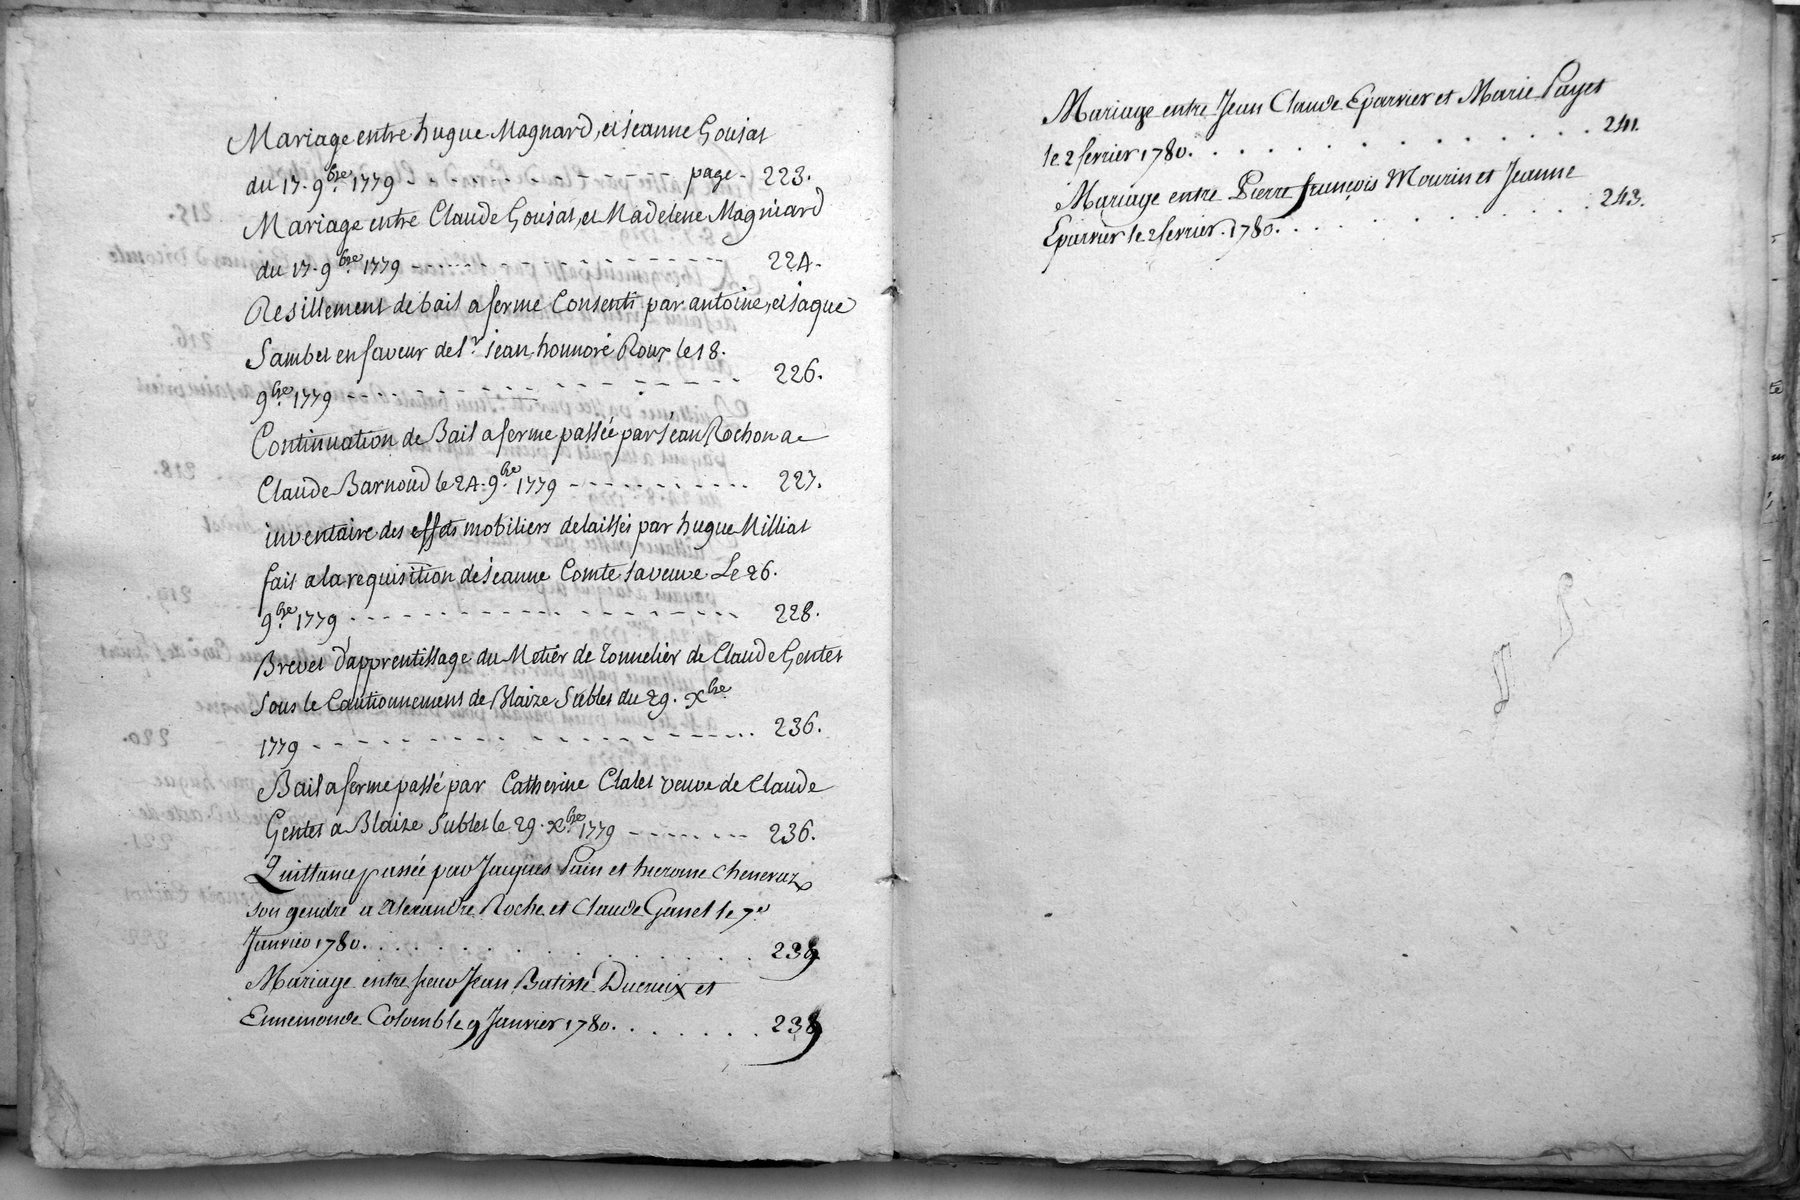 Mariage entre hugue Magnard, et jeanne Goujat
du 17. 9bre 1779 - - - - - - - - - - page - 223.
Mariage entre Claude Goujat, et Madelene Magniard
du 17. 9bre 1779 - - - - - - - - - - 224.
Resillement de bail a ferme Consenti par antoine, et jaque
Sambet en faveur de Sr jean honnoré Roux le 18.
9bre 1779 - - - - - - - - - - 226.
Continuation de Bail a ferme passée par jean Rochon a
Claude Barnoud le 24. 9bre 1779 - - - - - - - - 227.
inventaire des effets mobiliers delaissés par hugue Milliat
fait a la requisition de jeanne Comte sa veuve Le 26.
9bre 1779 - - - - - - - - - - 228.
Brevet d'apprentissage du Metier de Tonnelier de Claude Gentet
Sous le Cautionnement de Blaize Sublet du 29. Xbre
1779 - - - - - - - - - - 236.
Bail a ferme passé par Catherine Clalet veuve de Claude
Gentet a Blaize Sublet le 29. Xbre 1779 - - - - - - 236.
Quittance passée par Jacques Pain et hierome cheneraz
son gendre a Alexandre Roche et Claude Ganet le 7e
Janvier 1780. . . . . . . . . . 239
Mariage entre Jean Batiste Ducruix et
Ennemonde Colomb le 9 Janvier 1780. . . . . . . 239
Mariage entre Jean Claude Eparvier et Marie Payet
le 2 fevrier 1780. . . . . . . . . . 241.
Mariage entre Pierre françois Mourin et Jeanne
Eparvier le 2 fevrier. 1780. . . . . . . . . . 243.